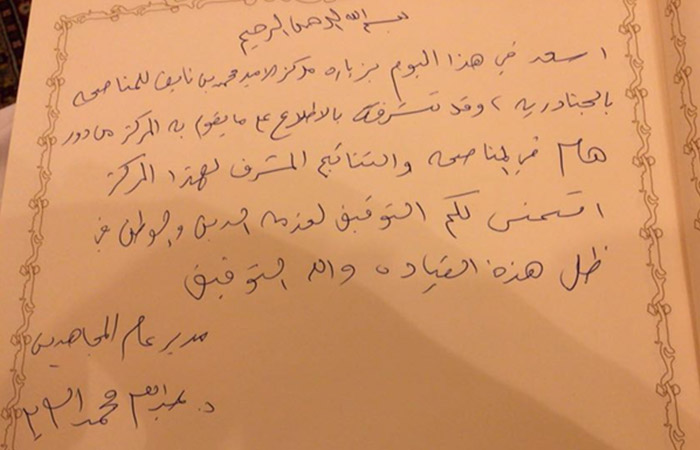 بسم الله الرحمن الرحيم
اسعد في هذا اليوم بزيارة مركز الامير محمد بن نايف للمناصحه
بالجنادريه ، وقد تشرفت بالاطلاع على ما يقوم به المركز من دور
هام في المناصحه والنتائج المشرف لهذا المركز
اتمنى لكم التوفيق لخدمة الدين والوطن في
ظل هذه القياده والله التوفيق
مدير عام المجاهدين
د. عبدالله محمد